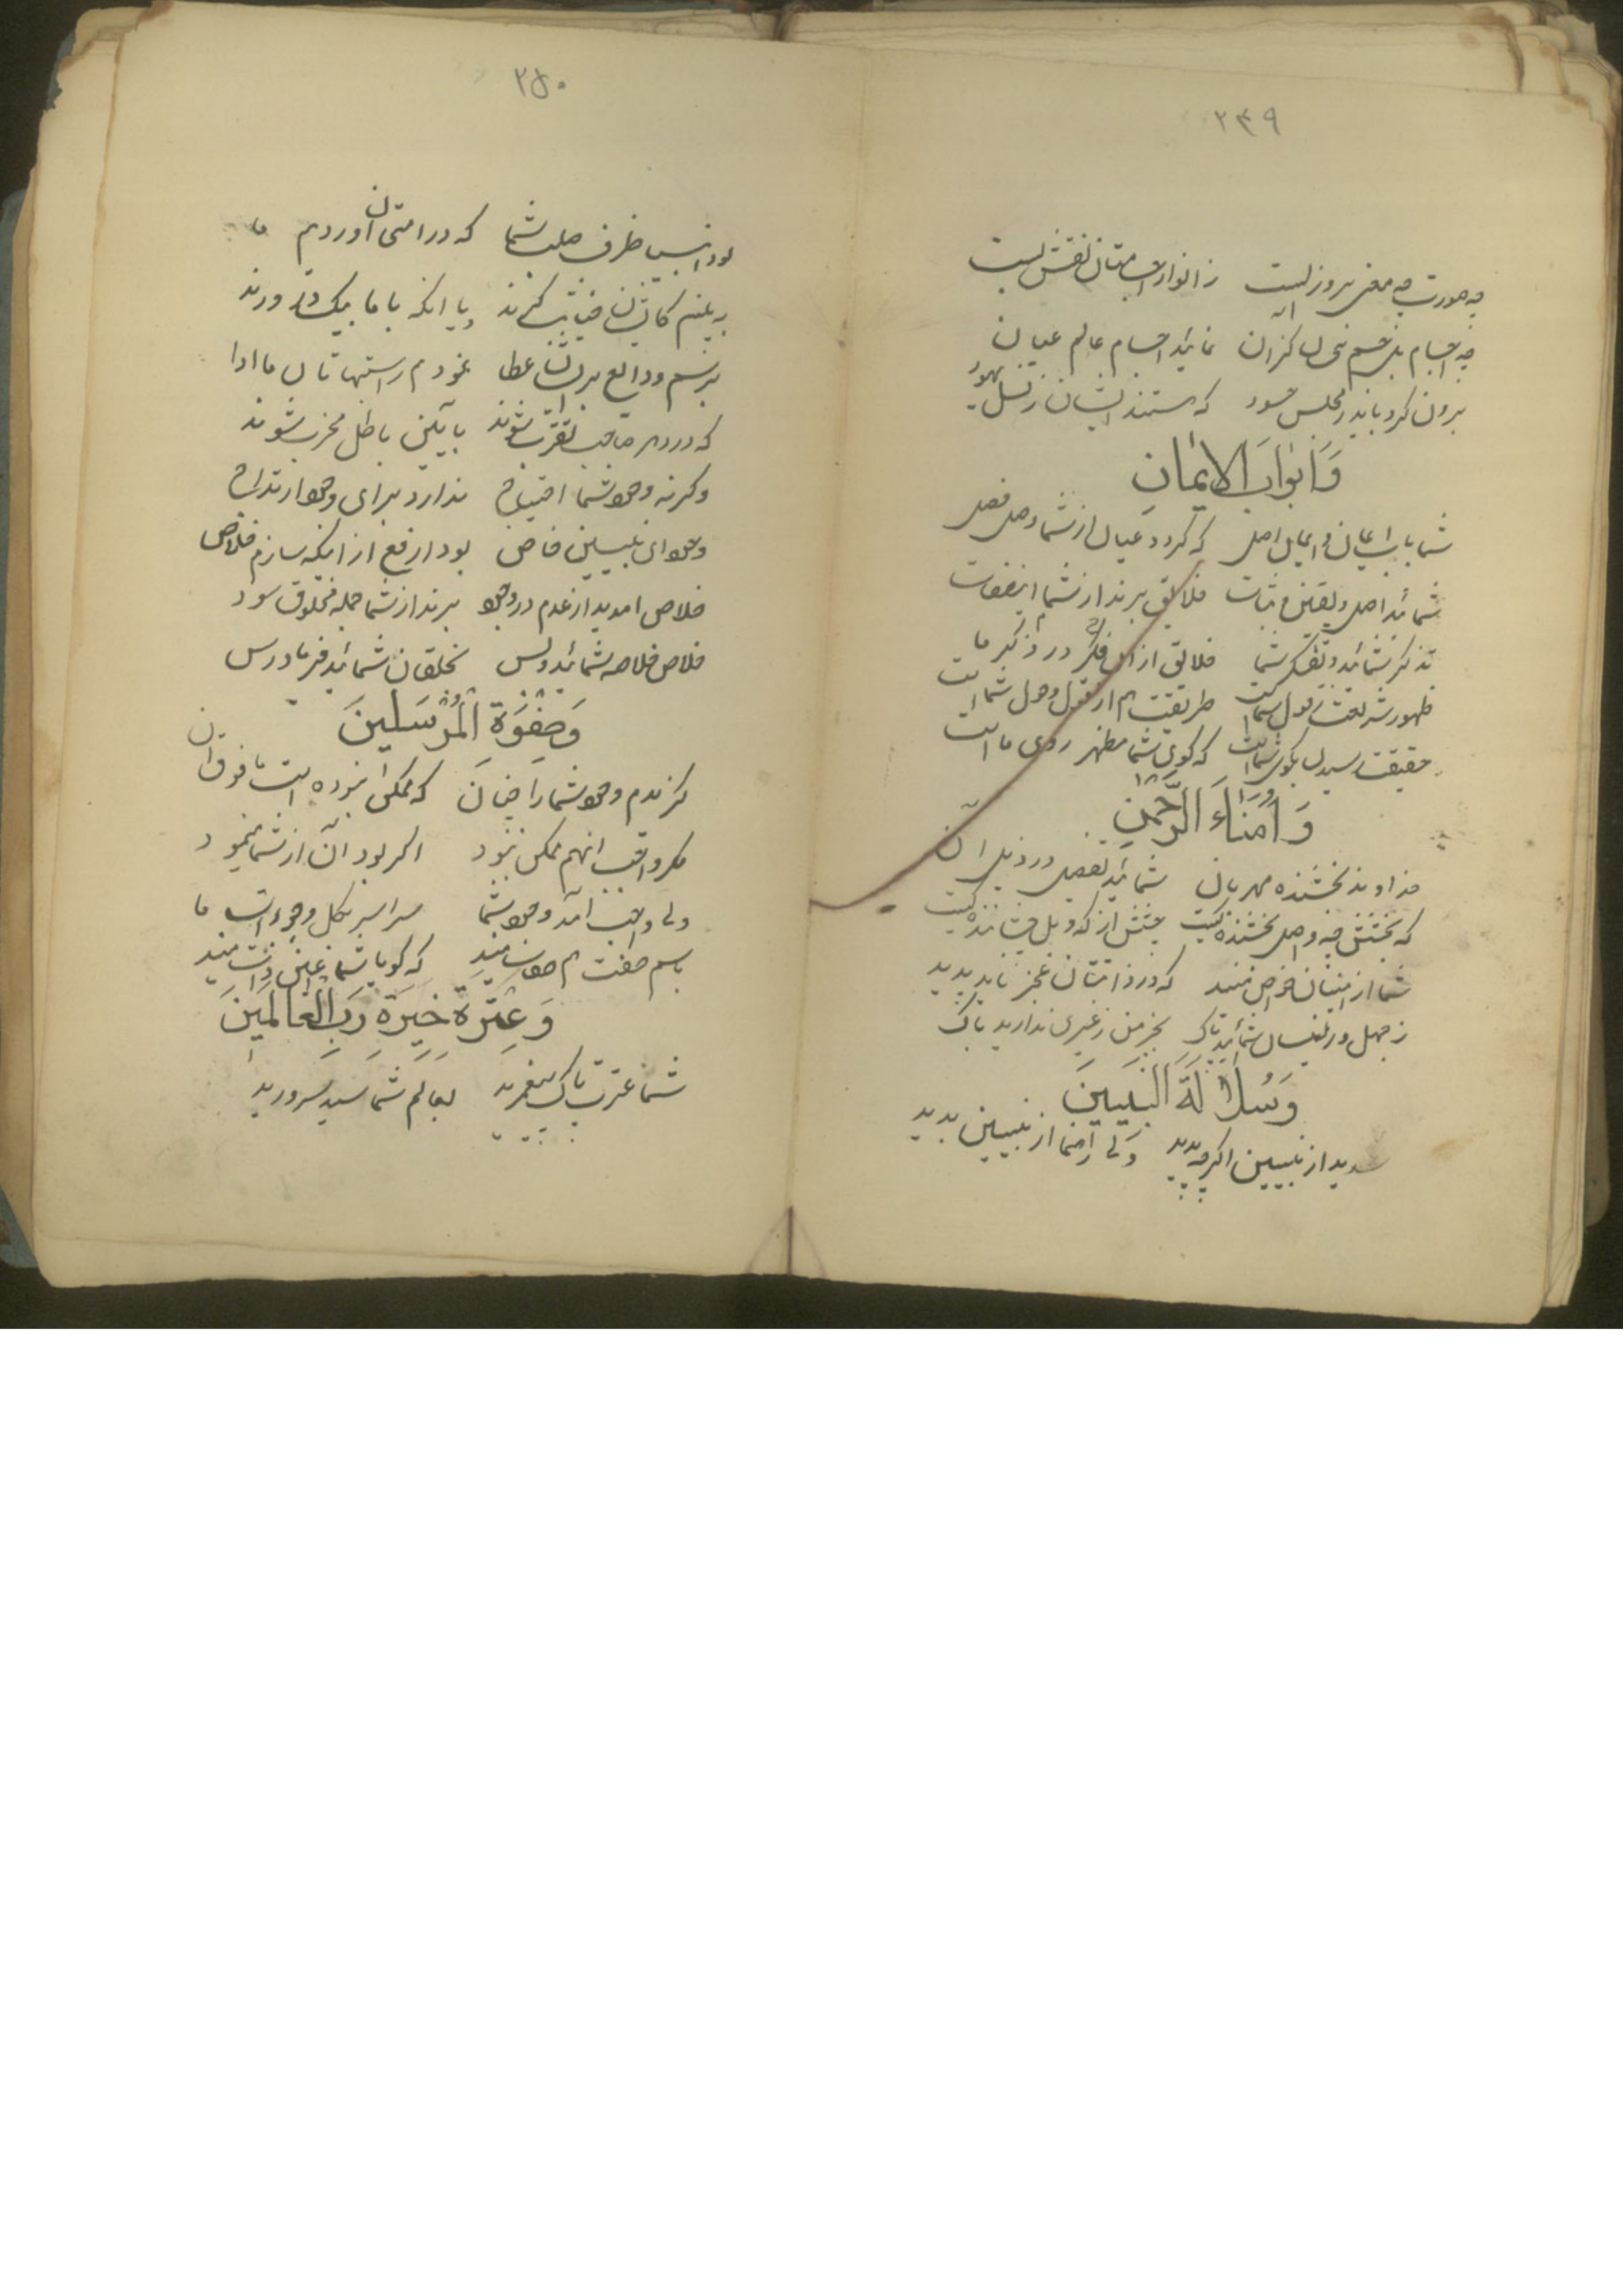 ۲۴۹
چه صورت چه معنی بروز است ز انوار اجسامتان نقش بست
چه اجسام عالم عیان
برون کرد باید ز مجلس حسود که هستند ایشان ز نسل یهود
وَاَبْوَابَ الْاِیمَانِ
شما باب ایمان و ایمان اصل که گردد عیان از شما وصل فصل
شمائید اصل و یقین و ثبات خلایق برند از شما این صفات
تذکر شمائید و تفکر شما خلایق از آن فکر در ذکر ما
ظهور شریعت ز قول شماست طریقت هم از قول و حول شماست
حقیقت رسیدن بکوی شماست که کوی شما مظهر روی ماست
وَاُمَنَاءَ الرَّحْمٰنِ
خداوند بخشنده مهربان شمائید تفصیل در ذیل آن
که بخشش چه و اصل بخشنده کیست
شما از
ز جهل و ز نسیان شمائید پاک بجز من ز غیری ندارید باک
وَسُلَالَةَ النَّبِیِّینَ
شدید از نبیین اگرچه پدید ولی رهنما از نبیین بدید
۲۵۰
بود انبیا ظرف صلب شما که در امتی آن آوردیم ما
به بینم کایشان خیانت کنند و یا آنکه با ما بیک در ورند
برسم ودایع بر ایشان عطا نمودم راستیها تا ادا
که در دهر صاحب تقرب شوند بآیین باطل مخرب شوند
وگرنه وجود شما احتیاج ندارد برای وجود ازدواج
وجود ای نبیین خاص بود ارفع از آنکه سازم خلاص
خلاص آمدید از عدم در وجود برند از شما جمله مخلوق سود
خلاص خلاصه شمائید و بس بخلقان شمائید فریادرس
وَصَفْوَةَ الْمُرْسَلِینَ
گزیدم وجود شما را چنان که ممکن نبوده است مافوق آن
مگر واجب آنهم ممکن نبود اگر بود آن از شما مینمود
ولی واجب آمد وجود شما سراسر بکل وجودات ما
باسم صفت هم صفات منید که گویا شما عین ذات منید
وَعِتْرَةَ خِیَرَةِ رَبِّ الْعَالَمِینَ
شما عترت پاک پیغمبرید بعالم شما سید و سرورید